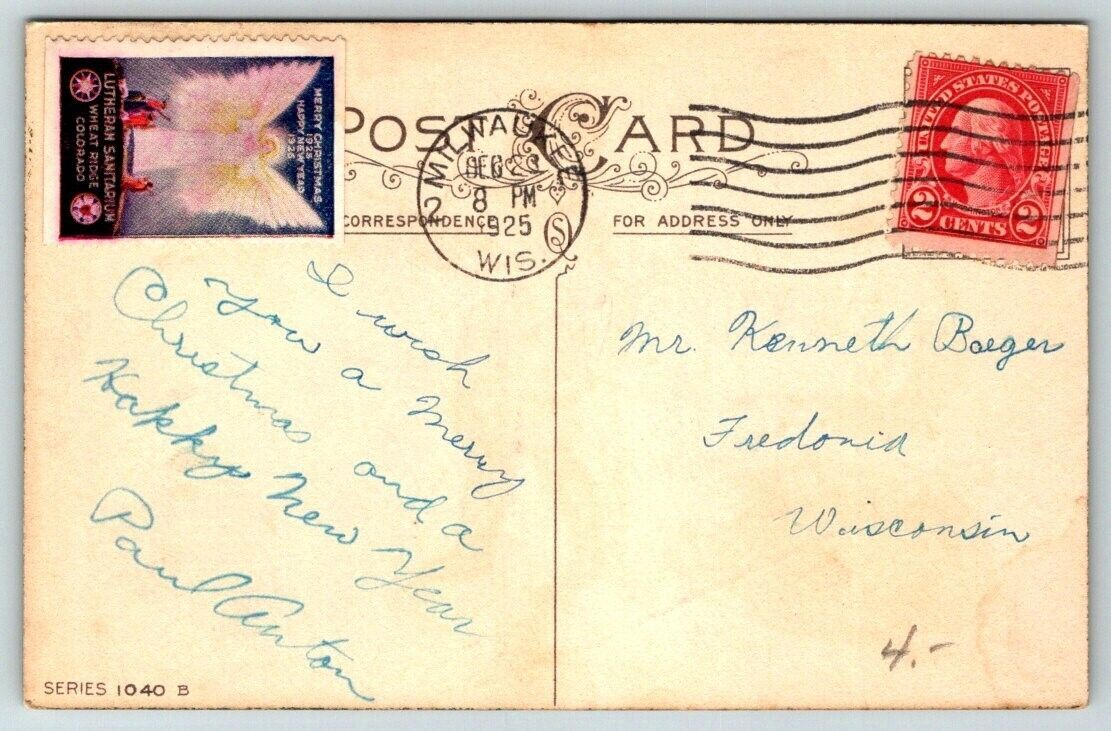 MERRY CHRISTMAS
1925
HAPPY NEW YEAR
1926
LUTHERAN SANITARIUM
WHEAT RIDGE
COLORADO
POST CARD
CORRESPONDENCE
FOR ADDRESS ONLY
MILWAUKEE
2
DEC 23
8 PM
1925
WIS.
S
UNITED STATES POSTAGE
2 CENTS 2
I wish
You a Merry
Christmas and a
Happy New Year
Paul Anton
Mr. Kenneth Baeger
Fredonia
Wisconsin
4.-
SERIES 1040 B